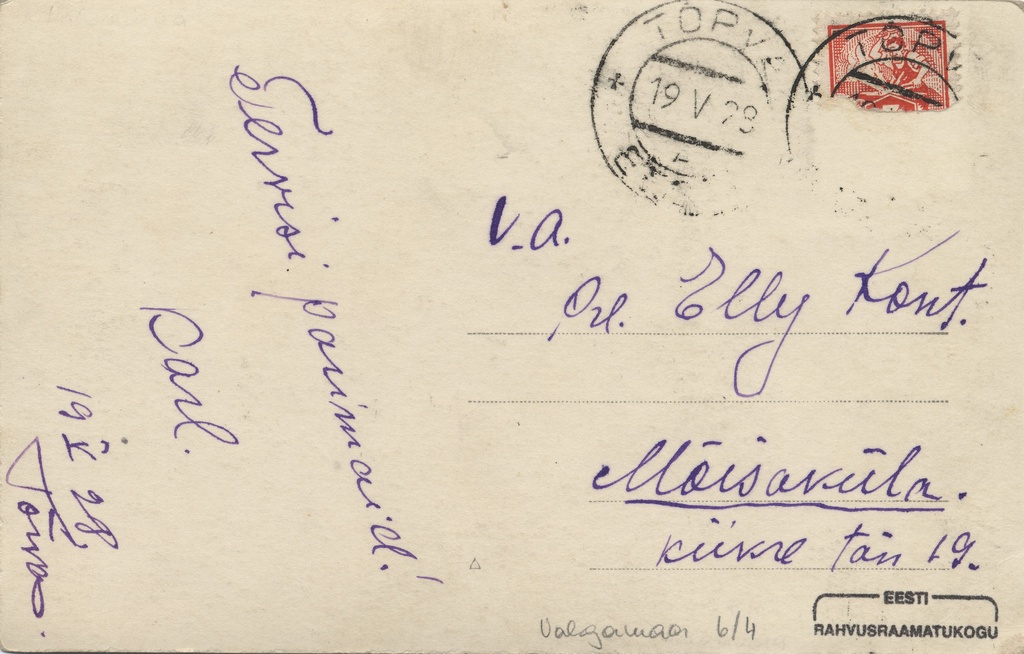 Tervisi parimaid!
Carl.
19 V 28.
Tõrva.
TÕRVA
19 V 28
EESTI
TÕRV
V.A.
Prl. Elly Kont.
Mõisaküla.
Kiikre tän 19.
Valgamaa 6/4
EESTI
RAHVUSRAAMATUKOGU